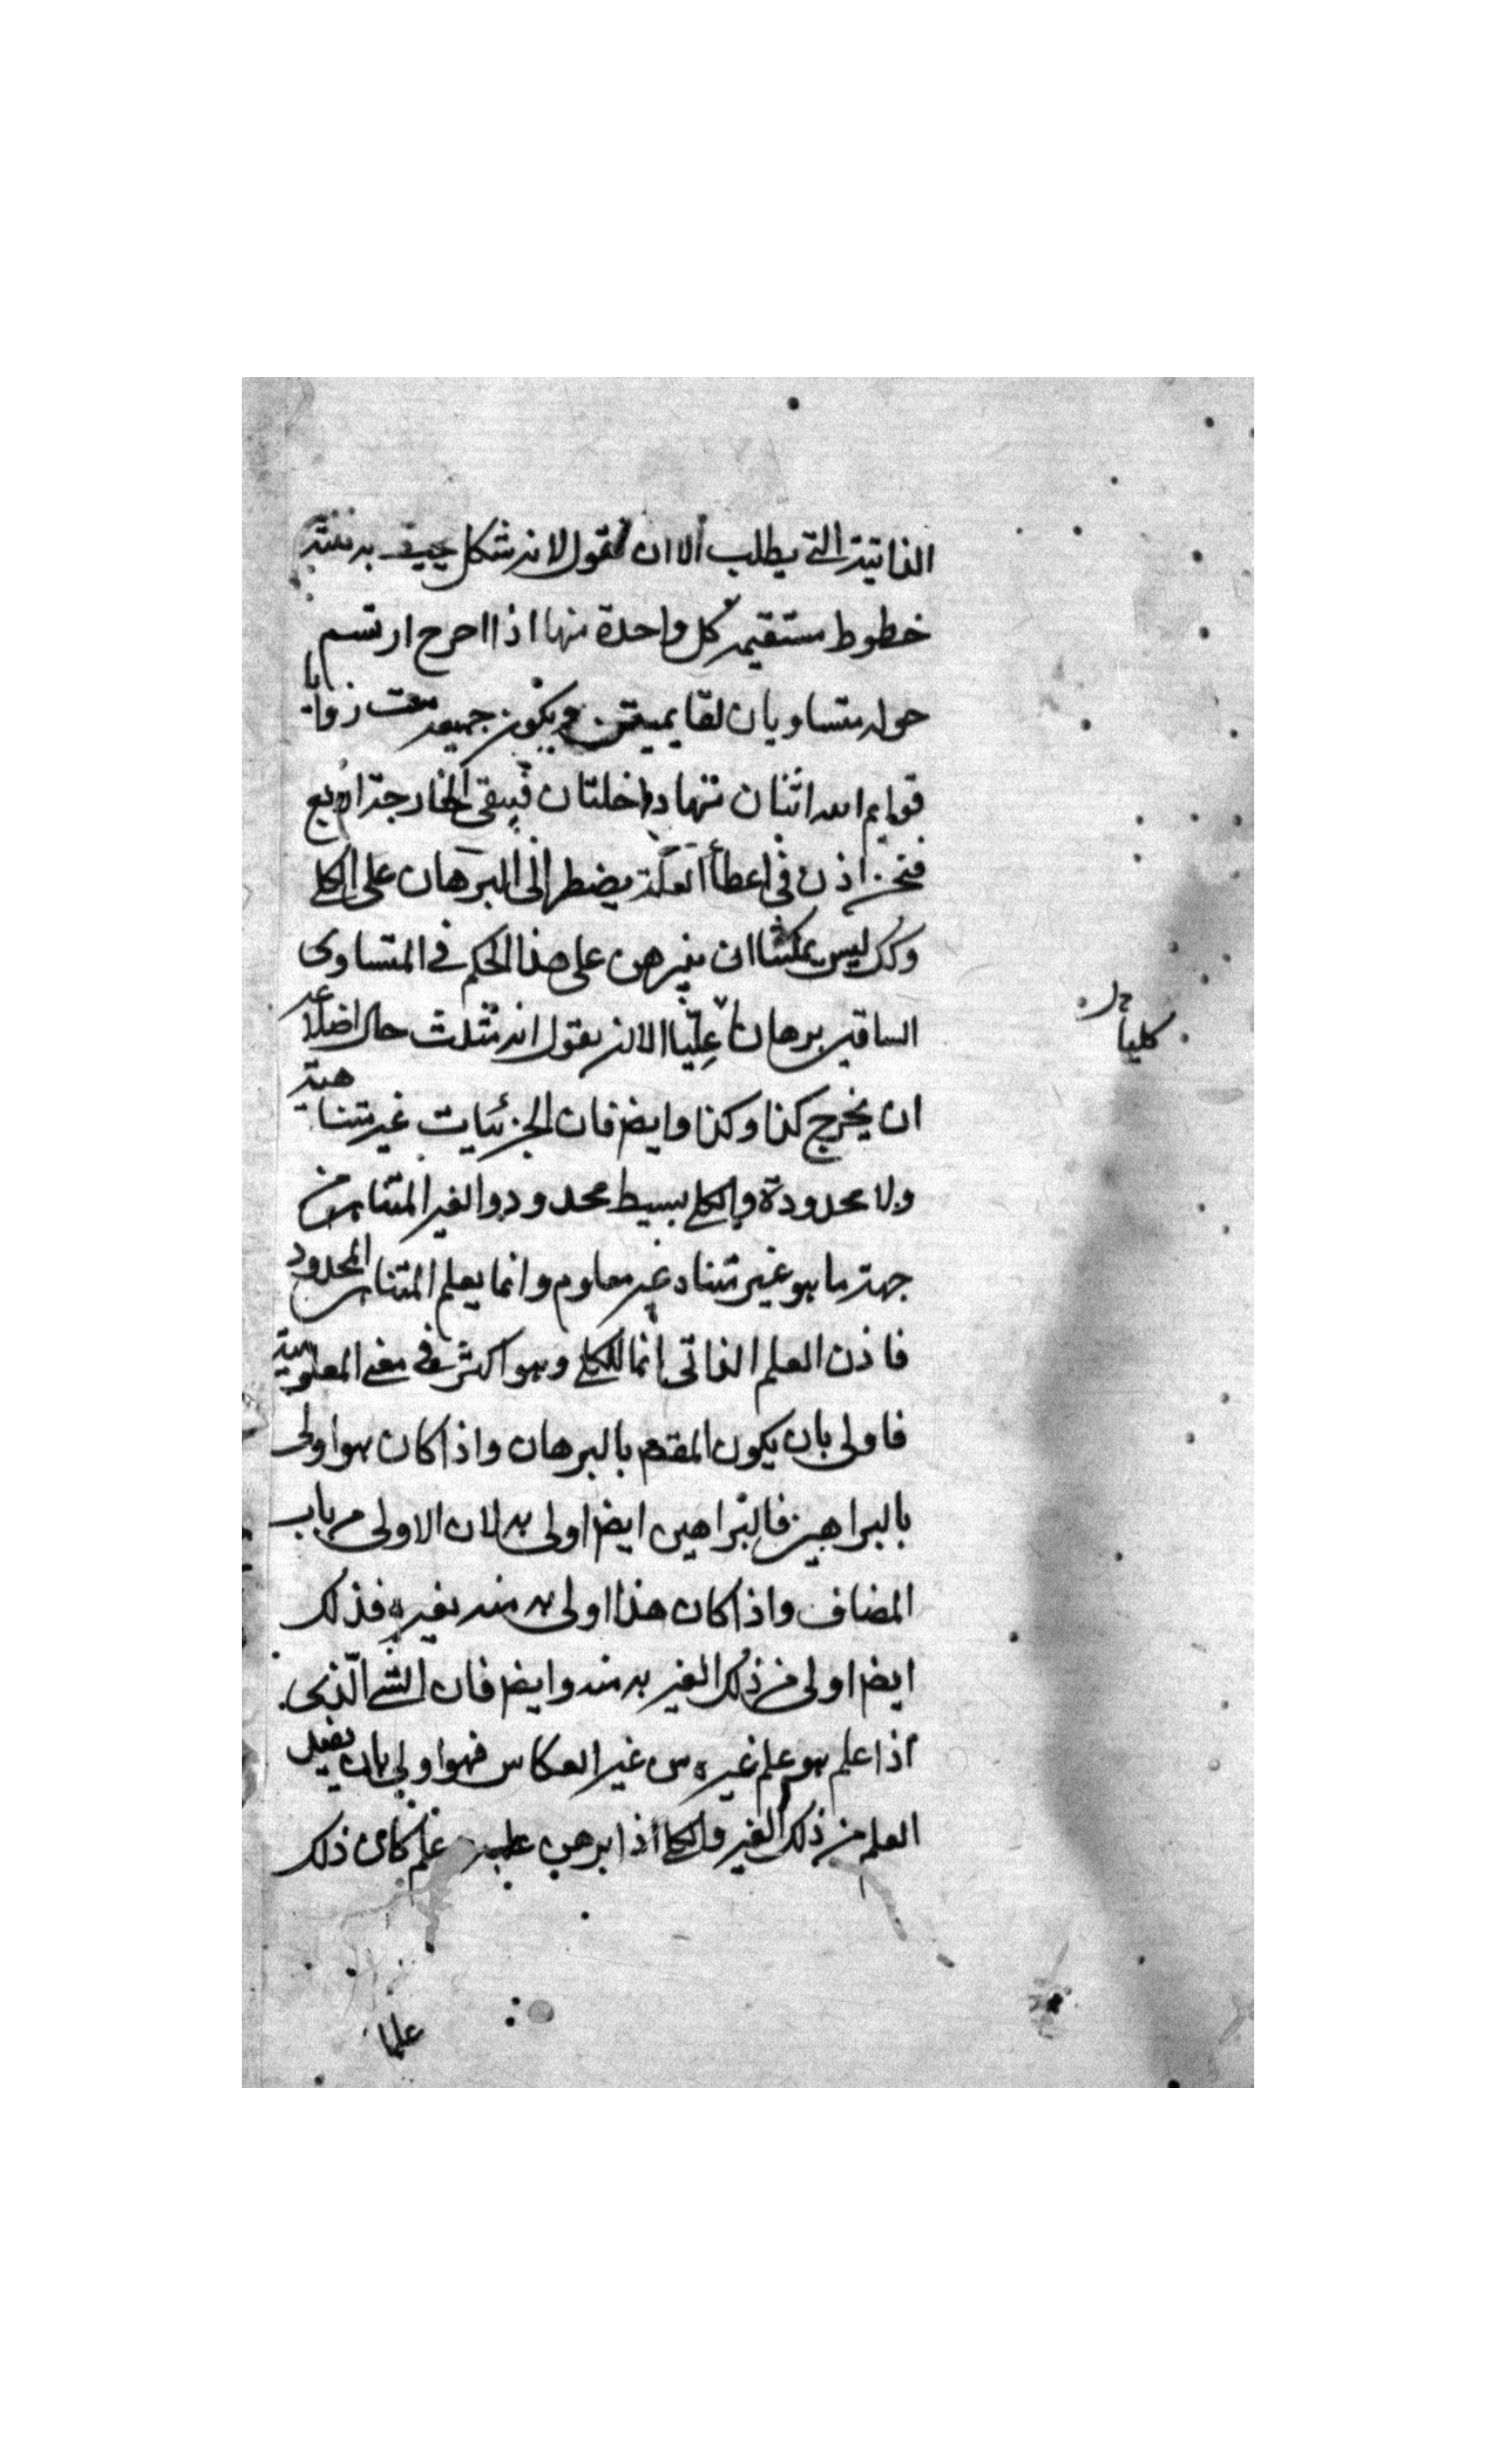 الذاتية التي يطلب الا ان نقول لانه شكل يحيط به ستة
خطوط مستقيمه كل واحدة منها اذا اخرج ارتسم
حوله متساويان لقايمتين ويكون جميعه ست زوايا
قوايم اثنان منها داخلتان فيبقى الخارجة اربع
فنحن اذن في اعطأ العلة يضطر الى البرهان على الكلي
وكك ليس يمكننا ان نبرهن على هذا الحكم في المتساوى
الساقين برهانا عليا الا ان نقول انه مثلث حال اضلاعه
ان يخرج كذا وكذا وايض فان الجزئيات غير متناهية
ولا محدودة والكلي بسيط محدود والغير المتناهى من
جهة ما هو غير متناه غير معلوم وانما يعلم المتناهى المحدود
فاذن العلم الذاتى انما للكلي وهو اكثر في معنى المعلومية
فاولى بان يكون المقدم بالبرهان واذا كان هو اولى
بالبراهين فالبراهين ايض اولى به لان الاولى من باب
المضاف واذا كان هذا اولى به منه بغيره فذلك
ايض اولى من ذلك الغير به منه وايض فان الشي الذى
اذا علم هو علم غيره من غير انعكاس فهو اولى بان يفيد
العلم من ذلك الغير والكلي اذا برهن عليه علم كان ذلك
علما
كليا